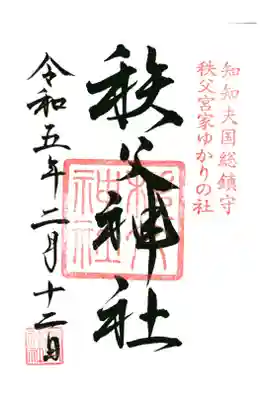 知知夫国総鎮守
秩父宮家ゆかりの社
秩父神社
令和五年二月十二日